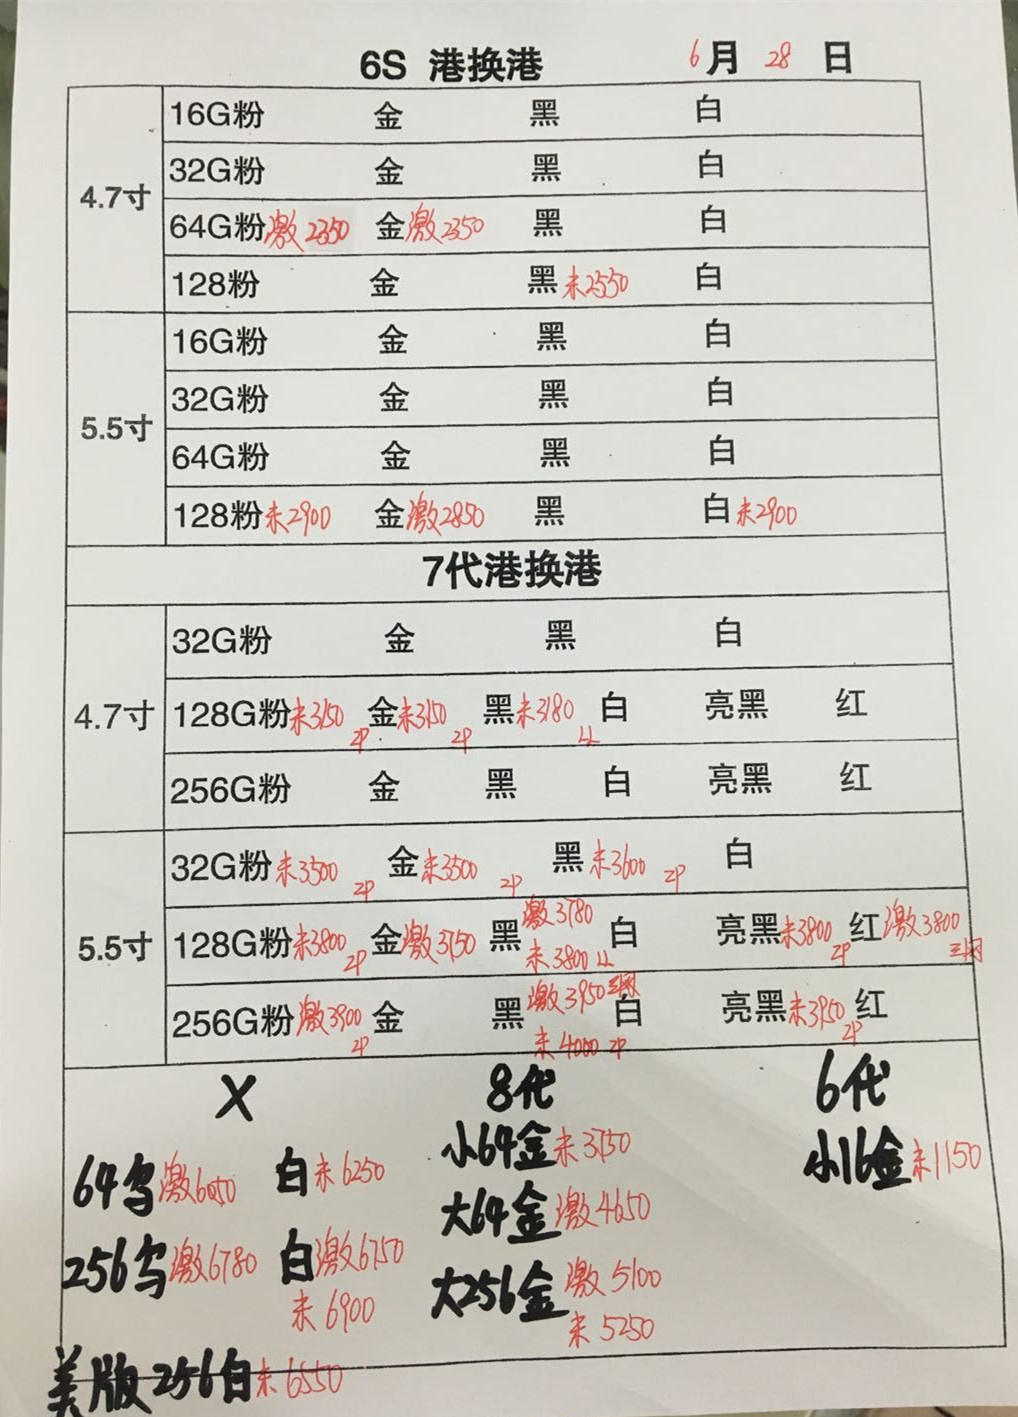 6S 港换港 6月 28 日
4.7寸
16G粉 金 黑 白
32G粉 金 黑 白
64G粉激2350 金激2350 黑 白
128粉 金 黑未2550 白
5.5寸
16G粉 金 黑 白
32G粉 金 黑 白
64G粉 金 黑 白
128粉未2900 金激2850 黑 白未2900
7代港换港
4.7寸
32G粉 金 黑 白
128G粉未3150 2P 金未3150 2P 黑未3180 LL 白 亮黑 红
256G粉 金 黑 白 亮黑 红
5.5寸
32G粉未3500 2P 金未3500 2P 黑未3600 2P 白
激3780
128G粉未3800 2P 金激3750 黑 白 亮黑未3800 2P 红激3800 三网
未3800 LL
激3950三网
256G粉激3900 2P 金 黑 白 亮黑未3950 2P 红
未4000 2P
X 8代 6代
小64金未3750 小16金未1150
64乌激6050 白未6250
大64金激4650
256乌激6780 白激6750
大256金激5100
未6900
未5250
美版256白未6550